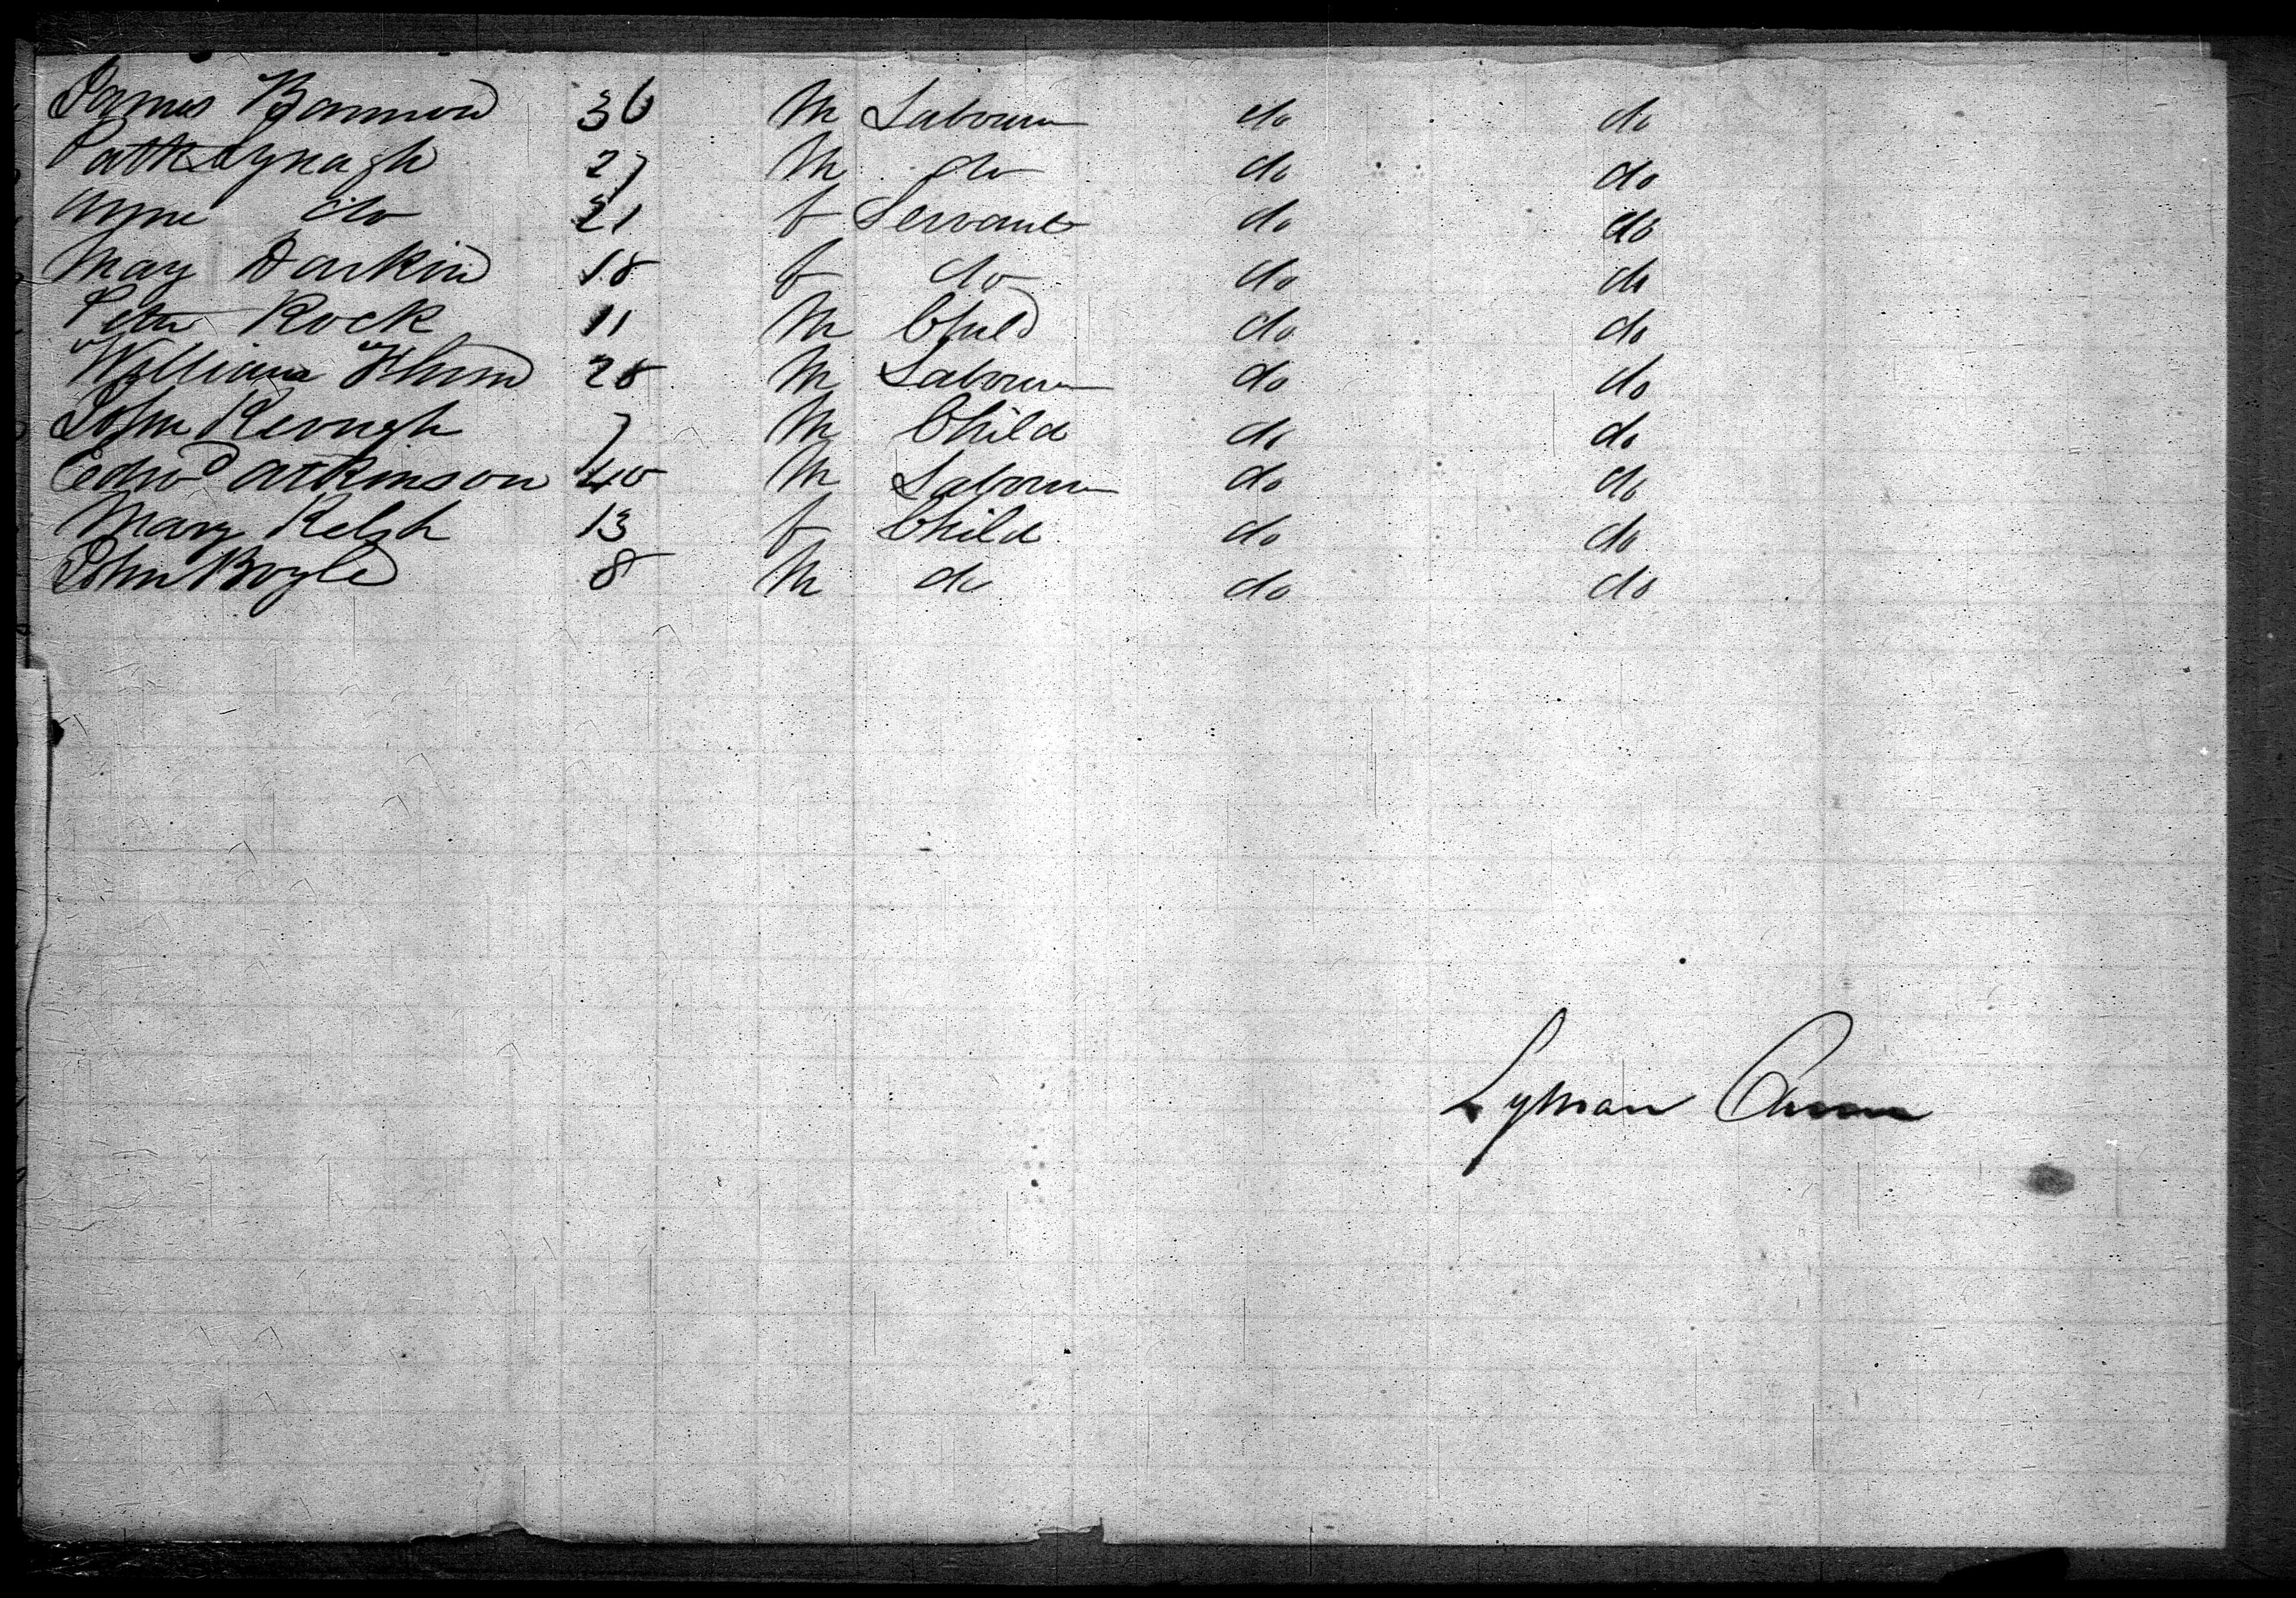 James Bannon 36 M Labourer do do
Patk Lynagh 27 M do do do
Anne do 21 f Servant do do
Mary Darkin 18 f do do do
Peter Rock 11 M Child do do
William 28 M Labourer do do
John Keough 7 M Child do do
Edwd Atkinson 40 M Labourer do do
Mary Kelsh 13 f Child do do
John Boyle 8 M do do do
Lyman